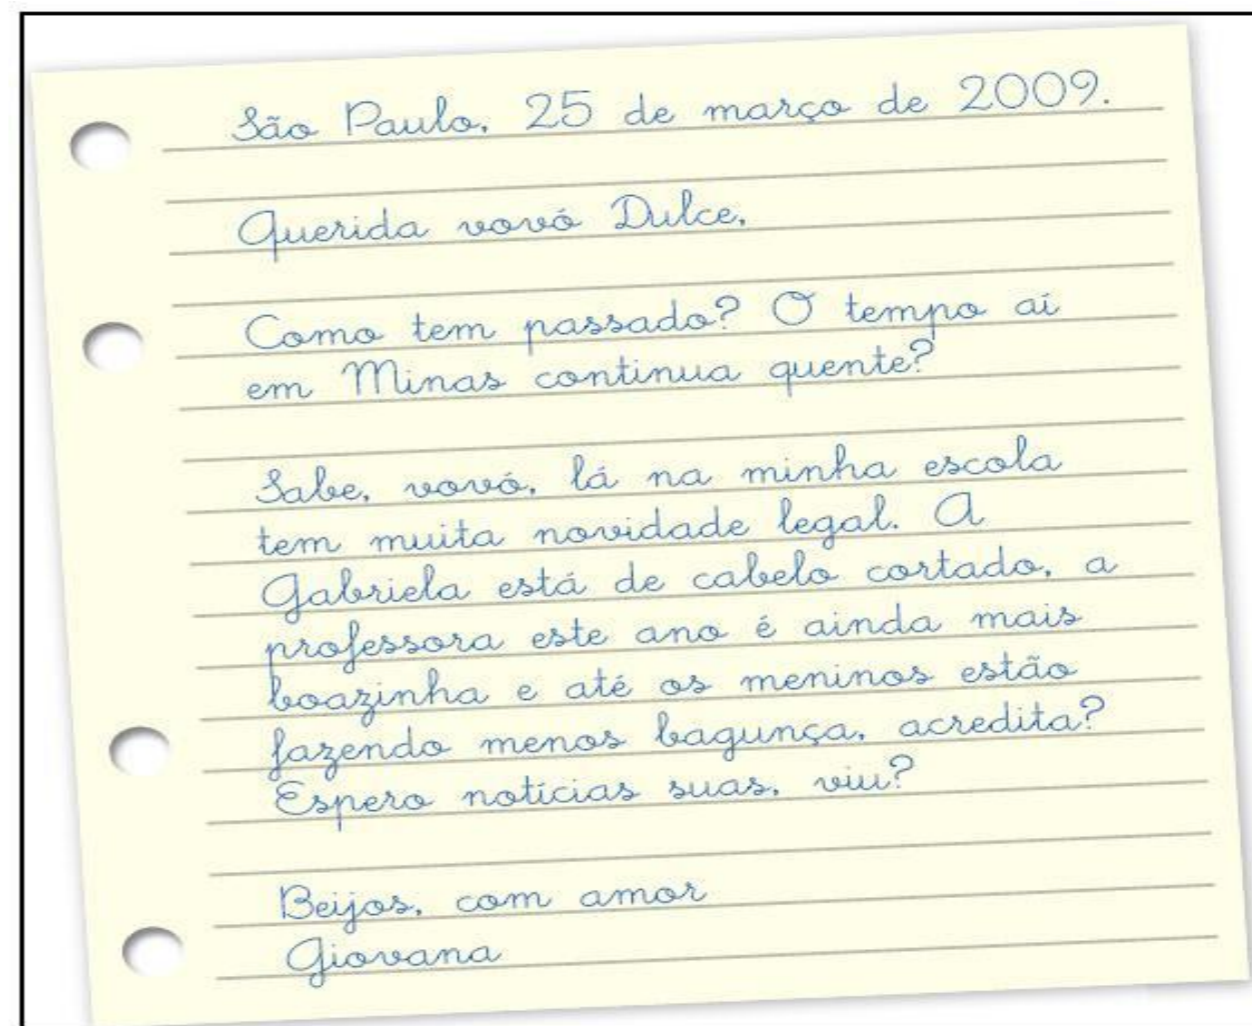 São Paulo, 25 de março de 2009.
Querida vovó Dulce,
Como tem passado? O tempo aí
em Minas continua quente?
Sabe, vovó, lá na minha escola
tem muita novidade legal. A
Gabriela está de cabelo cortado, a
professora este ano é ainda mais
boazinha e até os meninos estão
fazendo menos bagunça, acredita?
Espero notícias suas, viu?
Beijos, com amor
Giovana